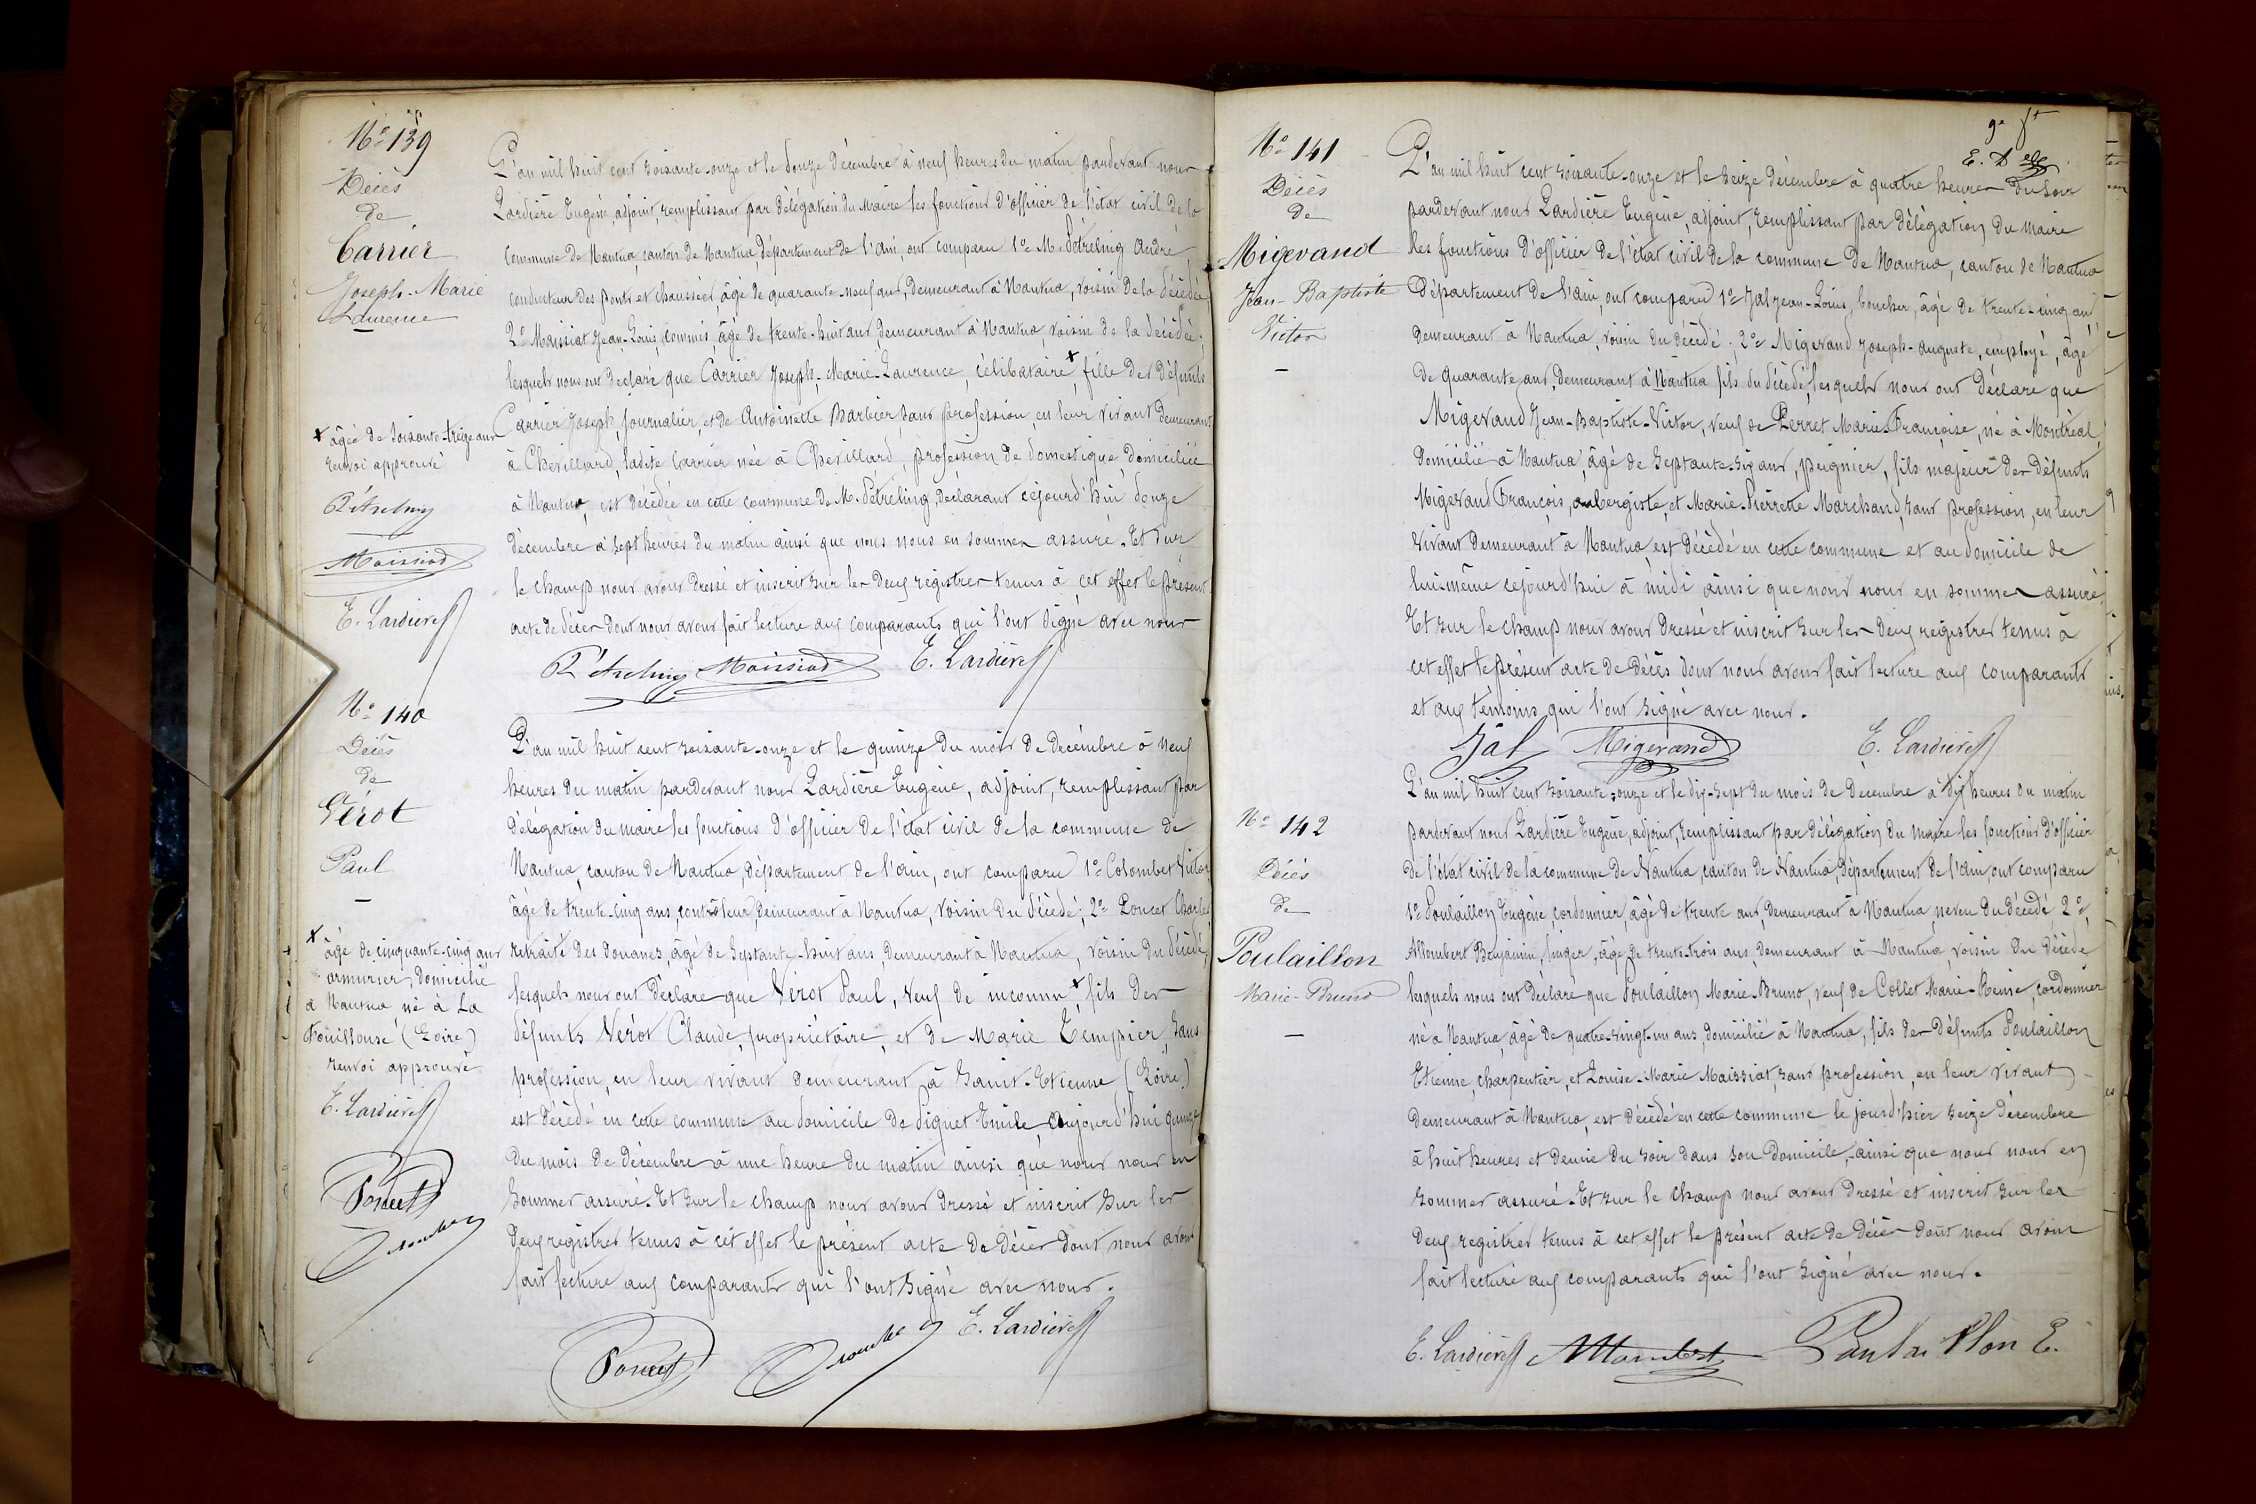 No 139
Décès
de
Carrier
Joseph-Marie
Laurence
L'an mil huit cent soixante-onze et le douze décembre à neuf heures du matin pardevant nous
Lardière Eugène, adjoint, remplissant par délégation du Maire les fonctions d'officier de l'état civil de la
commune de Nantua, canton de Nantua, département de l'ain, ont comparu 1o M. Pétreling André,
conducteur des ponts et chaussées, âgé de quarante-neuf ans, demeurant à Nantua, voisin de la décédée
2o Maissiat Jean-Louis, commis, âgé de trente-huit ans demeurant à Nantua, voisin de la décédée;
lesquels nous ont déclaré que Carrier Joseph-Marie-Laurence, célibataire x, fille des défunts
Carrier Joseph, journalier, et de Antoinette Barbier sans profession, en leur vivant demeurant
à Chevillard, ladite Carrier née à Chevillard, profession de domestique domiciliée
à Nantua, est décédée en cette commune de M. Pétreling, déclarant cejourd'hui douze
décembre à sept heures du matin ainsi que nous nous en sommes assuré. Et sur
le champ nous avons dressé et inscrit sur les deux registres tenus à cet effet le présent
acte de décès dont nous avons fait lecture aux comparants qui l'ont signé avec nous
Pétreling Maissiat E. Lardière
x âgée de soixante-treize ans
renvoi approuvé
Pétreling
Maissiat
E. Lardière
No 140
Décès
de
Vérot
Paul
L'an mil huit cent soixante-onze et le quinze du mois de décembre à neuf
heures du matin pardevant nous Lardière Eugène, adjoint, remplissant par
délégation du maire les fonctions d'officier de l'état civil de la commune de
Nantua, canton de Nantua, département de l'ain, ont comparu 1o Colombet Victor,
âgé de trente-cinq ans, contrôleur, demeurant à Nantua, voisin du décédé; 2o Poncet Charles
retraité des douanes, âgé de septante-huit ans, demeurant à Nantua, voisin du décédé,
lesquels nous ont déclaré que Vérot Paul, veuf de inconnu x fils des
défunts Vérot Claude, propriétaire, et de Marie Tempier, sans
profession, en leur vivant demeurant à Saint-Etienne (Loire)
est décédé en cette commune au domicile de Piquet Emile, aujourd'hui quinze
du mois de décembre à une heure du matin ainsi que nous nous en
sommes assuré. Et sur le champ nous avons dressé et inscrit sur les
deux registres tenus à cet effet le présent acte de décès dont nous avons
fait lecture aux comparants qui l'ont signé avec nous.
Poncet E. Lardière
x
âgé de cinquante-cinq ans
armurier, domicilié
à Nantua né à La
Fouillouse (Loire)
renvoi approuvé
E. Lardière
Poncet
No 141
Décès
de
Migevand
Jean-Baptiste
Victor
L'an mil huit cent soixante-onze et le seize décembre à quatre heures du soir
pardevant nous Lardière Eugène, adjoint, remplissant par délégation du maire
les fonctions d'officier de l'état civil de la commune de Nantua, canton de Nantua
département de l'ain, ont comparu 1o Jal Jean-Louis, boucher, âgé de trente-cinq ans,
demeurant à Nantua, voisin du décédé; 2o Migevand Joseph-Auguste, employé, âgé
de quarante ans, demeurant à Nantua fils du décédé, lesquels nous ont déclaré que
Migevand Jean-Baptiste-Victor, veuf de Perret Marie-Françoise, né à Montréal,
domicilié à Nantua, âgé de septante-six ans, peignier, fils majeur des défunts
Migevand François, aubergiste, et Marie-Pierrette Marchand, sans profession, en leur
vivant demeurant à Nantua est décédé en cette commune et au domicile de
lui-même cejourd'hui à midi ainsi que nous nous en sommes assuré.
Et sur le champ nous avons dressé et inscrit sur les deux registres tenus à
cet effet le présent acte de décès dont nous avons fait lecture aux comparants
et aux témoins qui l'ont signé avec nous.
Jal Migevand E. Lardière
No 142
Décès
de
Poulaillon
Marie-Bruno
L'an mil huit cent soixante-onze et le dix-sept du mois de Décembre à dix heures du matin
pardevant nous Lardière Eugène, adjoint, remplissant par délégation du maire les fonctions d'officier
de l'état civil de la commune de Nantua, canton de Nantua, département de l'ain, ont comparu
1o Poulaillon Eugène, cordonnier, âgé de trente ans, demeurant à Nantua neveu du décédé 2o
Allombert Benjamin, âgé de trente-trois ans, demeurant à Nantua voisin du décédé
lesquels nous ont déclaré que Poulaillon Marie-Bruno, veuf de Collet Marie-Reine, cordonnier
né à Nantua, âgé de quatre-vingt-un ans, domicilié à Nantua, fils des défunts Poulaillon
Etienne, charpentier, et Louise-Marie Maissiat, sans profession, en leur vivant
demeurant à Nantua, est décédé en cette commune le jourd'hier seize décembre
à huit heures et demie du soir dans son domicile, ainsi que nous nous en
sommes assuré. Et sur le champ nous avons dressé et inscrit sur les
deux registres tenus à cet effet le présent acte de décès dont nous avons
fait lecture aux comparants qui l'ont signé avec nous.
E. Lardière Allombert Poulaillon E.